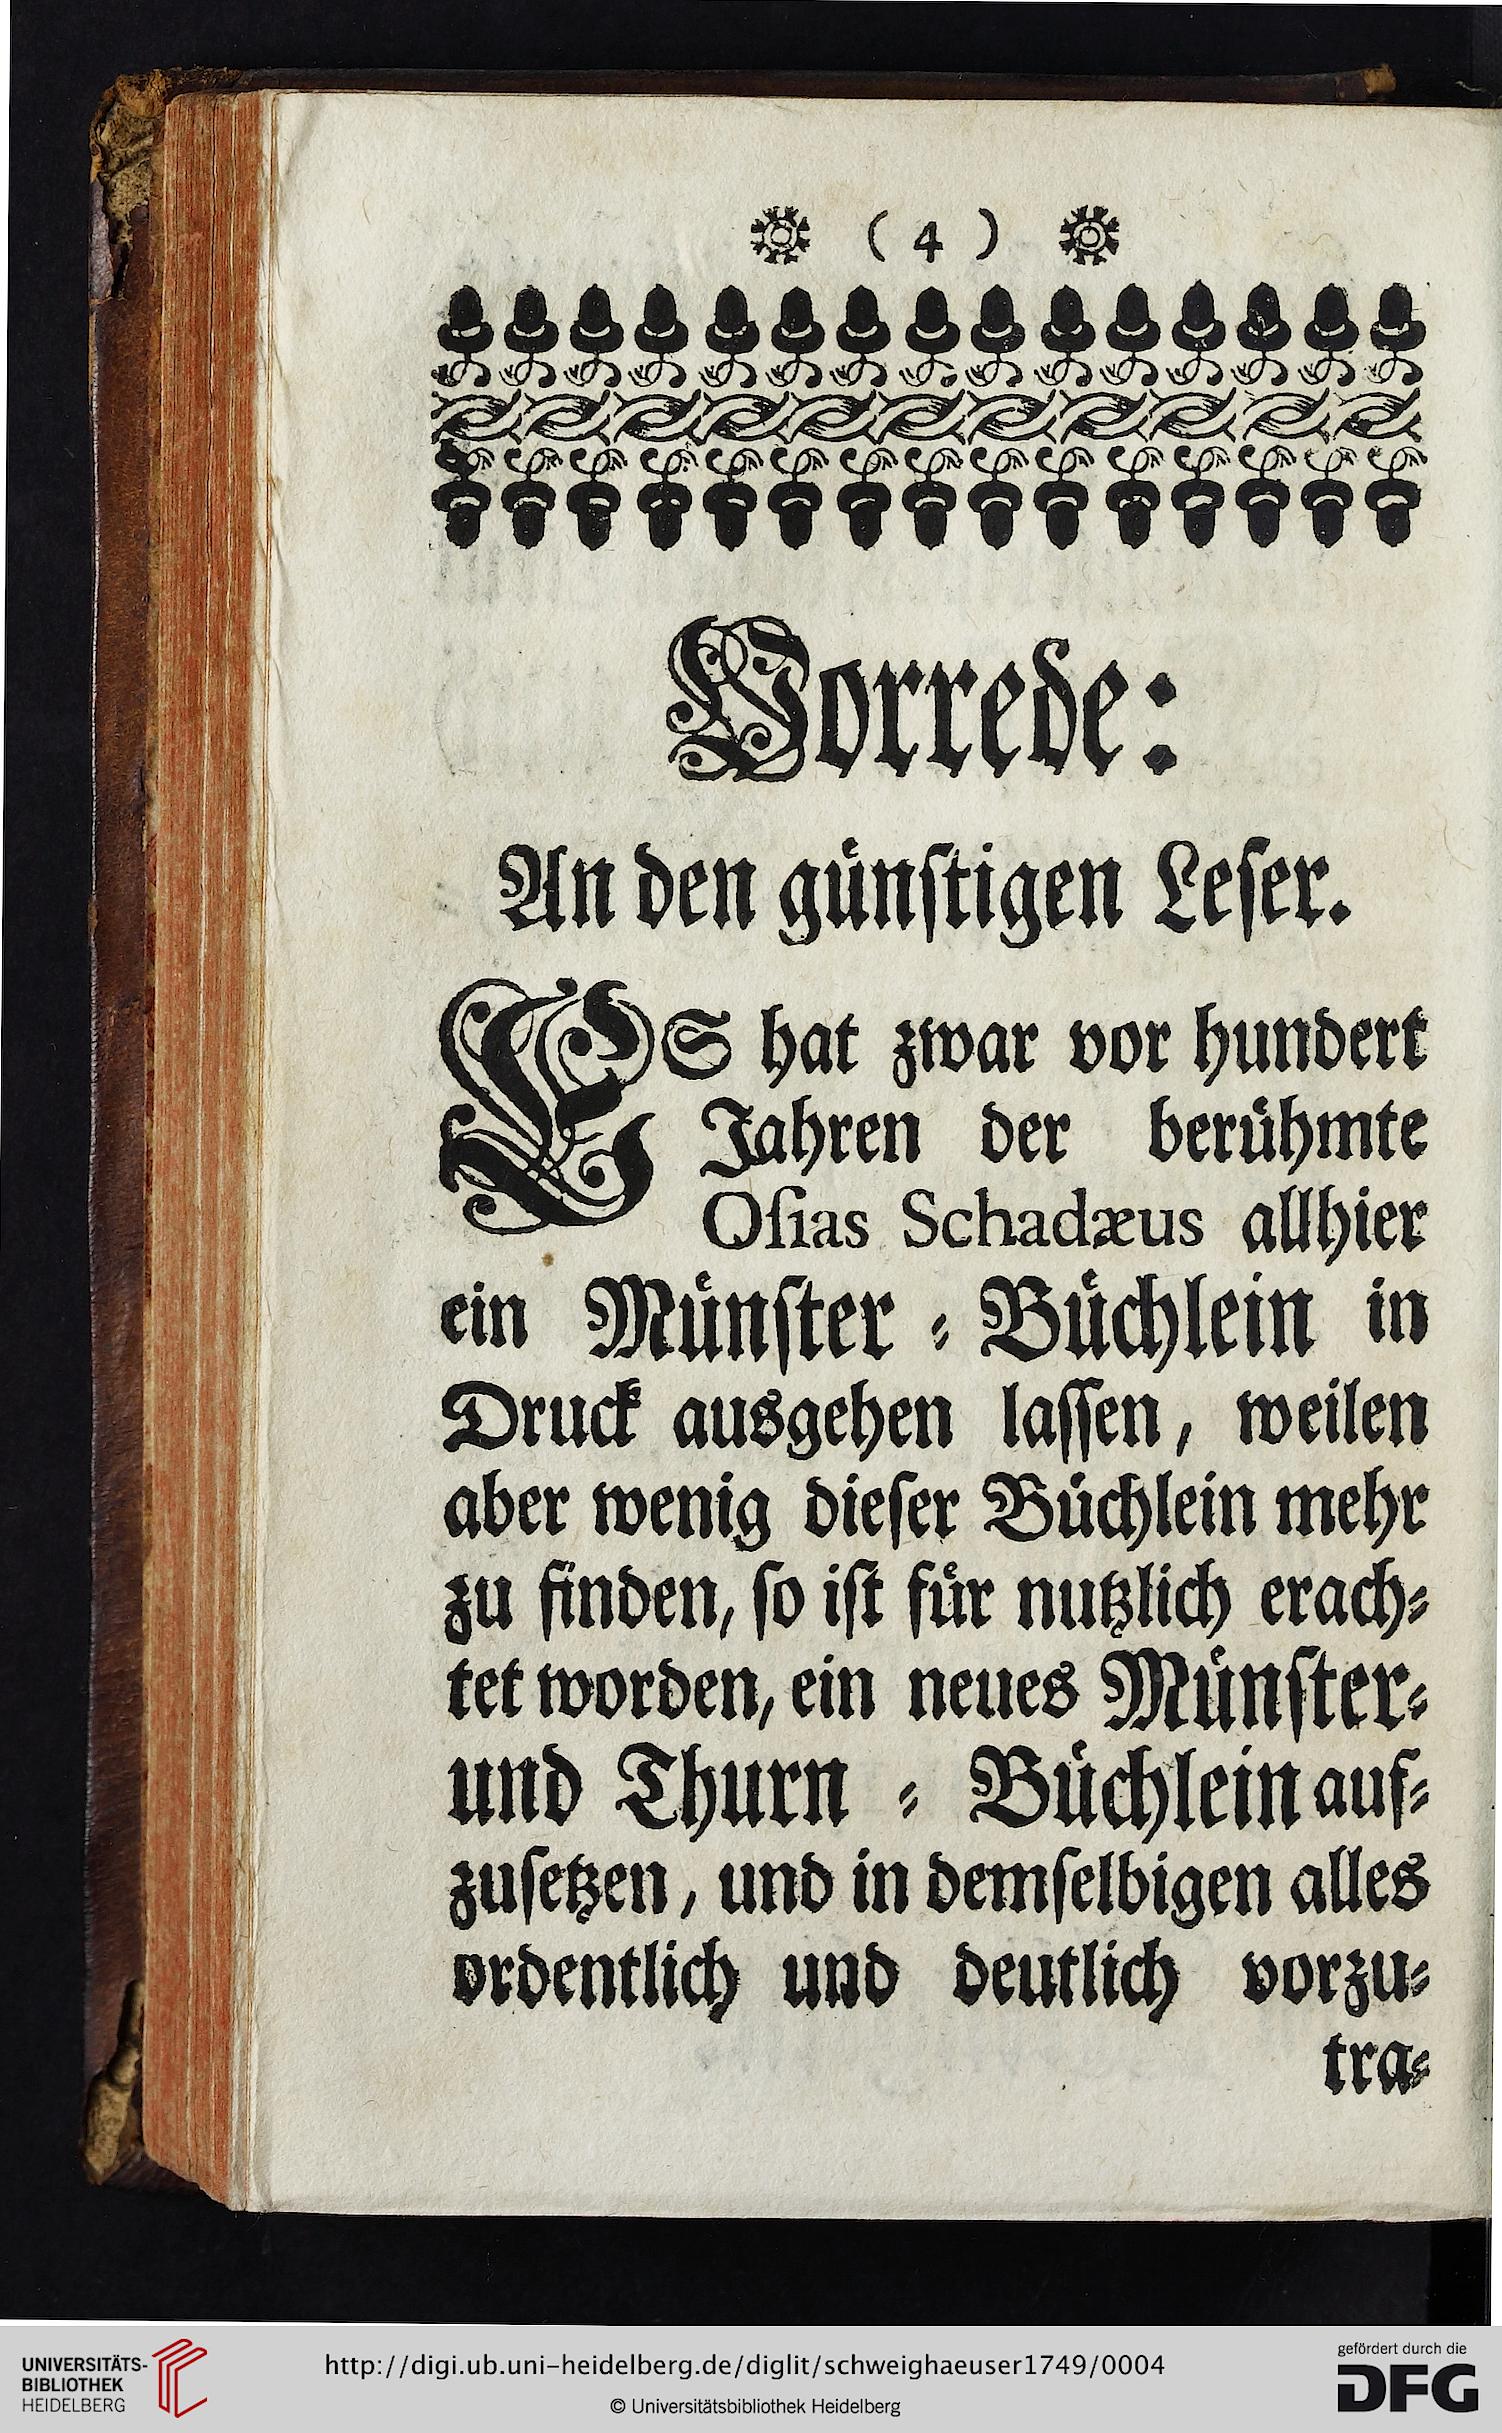 ( 4 )
Vorrede:
An den günſtigen Leſer.
ES hat zwar vor hundert
Jahren der berühmte
Oſias Schadæus allhier
ein Münſter ⸗ Büchlein in
Druck ausgehen laſſen, weilen
aber wenig dieſer Büchlein mehr
zu finden, ſo iſt für nutzlich erach⸗
tet worden, ein neues Münſter⸗
und Thurn ⸗ Büchlein auf⸗
zuſetzen, und in demſelbigen alles
ordentlich und deutlich vorzu⸗
tra⸗
UNIVERSITÄTS-
BIBLIOTHEK
HEIDELBERG
http://digi.ub.uni-heidelberg.de/diglit/schweighaeuser1749/0004
© Universitätsbibliothek Heidelberg
gefördert durch die
DFG